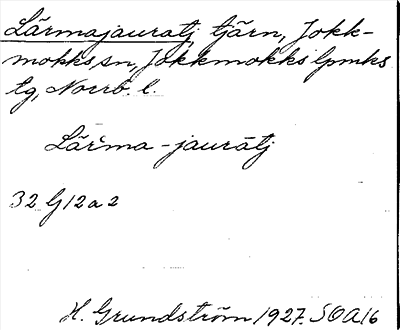 Lärmajauratj, tjärn, Jokk-
mokks sn, Jokkmokks lpmks
tg, Norrb. l.
Lärma-jauratj
32 G 12 a 2
H. Grundström 1927. SOA 16